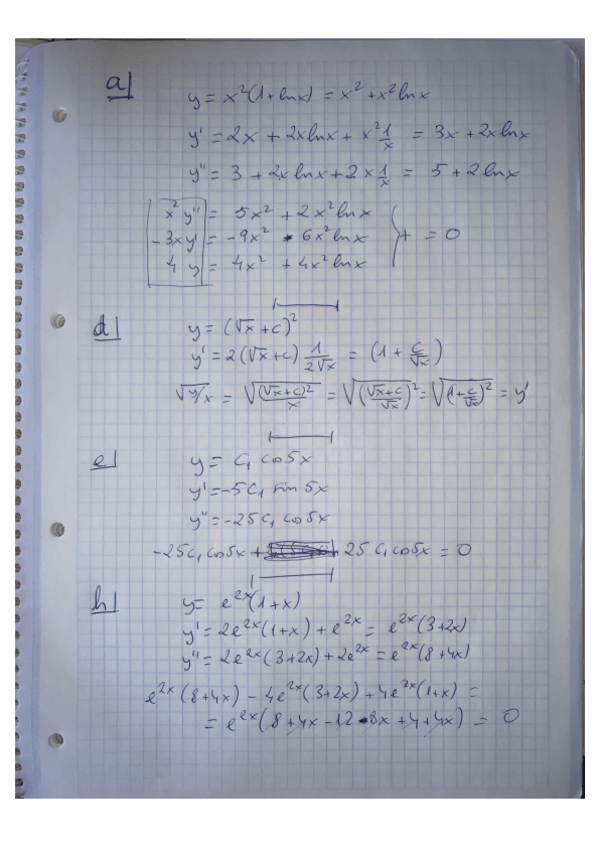 a|
y = x²(1+lnx) = x² + x² lnx
y' = 2x + 2x lnx + x² 1/x = 3x + 2x lnx
y'' = 3 + 2x lnx + 2x 1/x = 5 + 2 lnx
x² y'' = 5x² + 2x² lnx
- 3x y' = -9x² - 6x² lnx } + = 0
4 y = 4x² + 4x² lnx
d|
y = (√x + c)²
y' = 2(√x + c) 1/2√x = (1 + c/√x)
√y/x = √((√x+c)²/x) = √((√x+c)/√x)² = √(1+c/√x)² = y'
e|
y = c₁ cos5x
y' = -5c₁ sin 5x
y'' = -25c₁ cos5x
-25c₁ cos5x + 25 c₁ cos5x = 0
h|
y = e²ˣ(1+x)
y' = 2e²ˣ(1+x) + e²ˣ = e²ˣ(3+2x)
y'' = 2e²ˣ(3+2x) + 2e²ˣ = e²ˣ(8+4x)
e²ˣ(8+4x) - 4e²ˣ(3+2x) + 4e²ˣ(1+x) =
= e²ˣ(8+4x-12-8x+4+4x) = 0